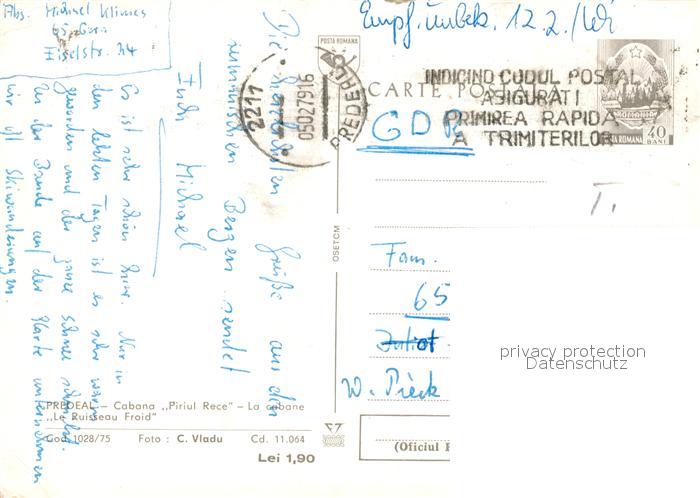 Abs. Michael Klimes
65 Gera
Eiselstr. 14
Die herzlichsten Grüße aus den
rumänischen Bergen sendet
Euch Michael
Es ist sehr schön hier. Nur in
den letzten Tagen ist es sehr warm
geworden und der ganze Schnee schmilzt.
Zu der Baude auf der Karte unternehmen
wir oft Skiwanderungen.
Empf. unbek. 12.2./
POSTA ROMANA
CARTE POȘTALĂ
INDICIND CODUL POSTAL
ASIGURATI
PRIMIREA RAPIDA
A TRIMITERILOR
2211
05027916
PREDEAL
POSTA ROMANA
40
BANI
GDR
T.
OSETCM
Fam.
65
Juliot
W. Pieck
privacy protection
Datenschutz
PREDEAL — Cabana „Pîrîul Rece" — La cabane
„Le Ruisseau Froid"
God 1028/75 Foto : C. Vladu Cd. 11.064
Lei 1,90
(Oficiul P